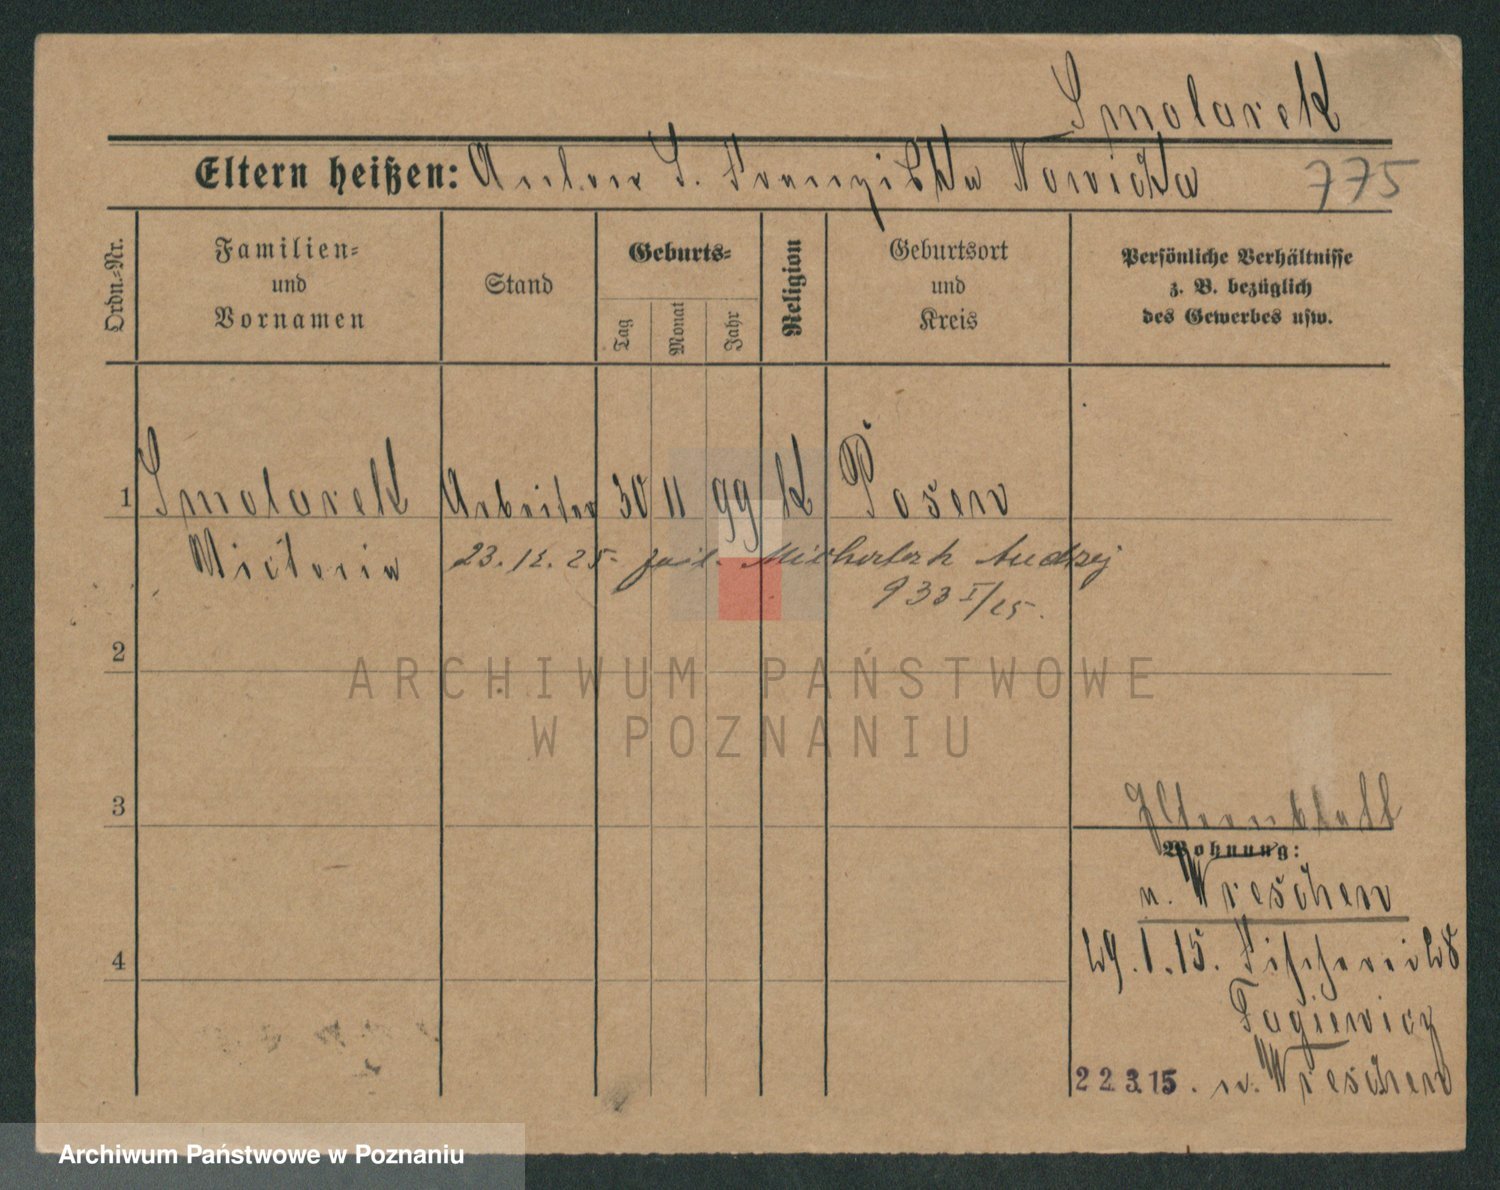 Smolarek
Eltern heißen: Anton S. Franziska Nowicka 775
Ordn.-Nr.
Familien-
und
Vornamen
Stand
Geburts-
Tag
Monat
Jahr
Religion
Geburtsort
und
Kreis
Persönliche Verhältnisse
z. B. bezüglich
des Gewerbes usw.
1 Smolarek Arbeiter 30 11 99 K Posen
Victoria 23. 12. 25 - zaśl. Michalak Andrzej
933 I/25.
2
ARCHIWUM PAŃSTWOWE
W POZNANIU
3
Elternblatt
Wohnung:
n. Wreschen
4
29.1.15. Fischerei 28
Fagiewicz
22.3.15. n. Wreschen
Archiwum Państwowe w Poznaniu